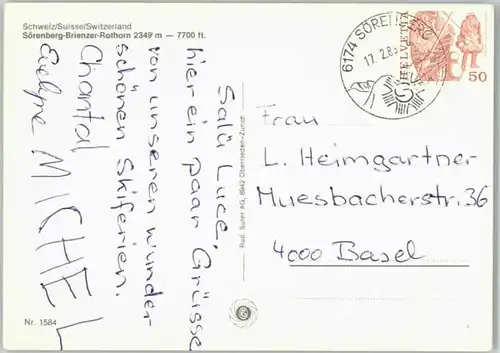 Schweiz/Suisse/Switzerland
Sörenberg-Brienzer-Rothorn 2349 m — 7700 ft.
Salü Luce,
hier ein paar Grüsse
von unseren wunder
schönen Skiferien.
Chantal
Evelyne MICHEL
Nr. 1584
Rud. Suter AG, 8942 Oberrieden-Zürich
6174 SÖRENBERG
17.2.83
HELVETIA
50
Frau
L. Heimgartner
Muesbacherstr. 36
4000 Basel